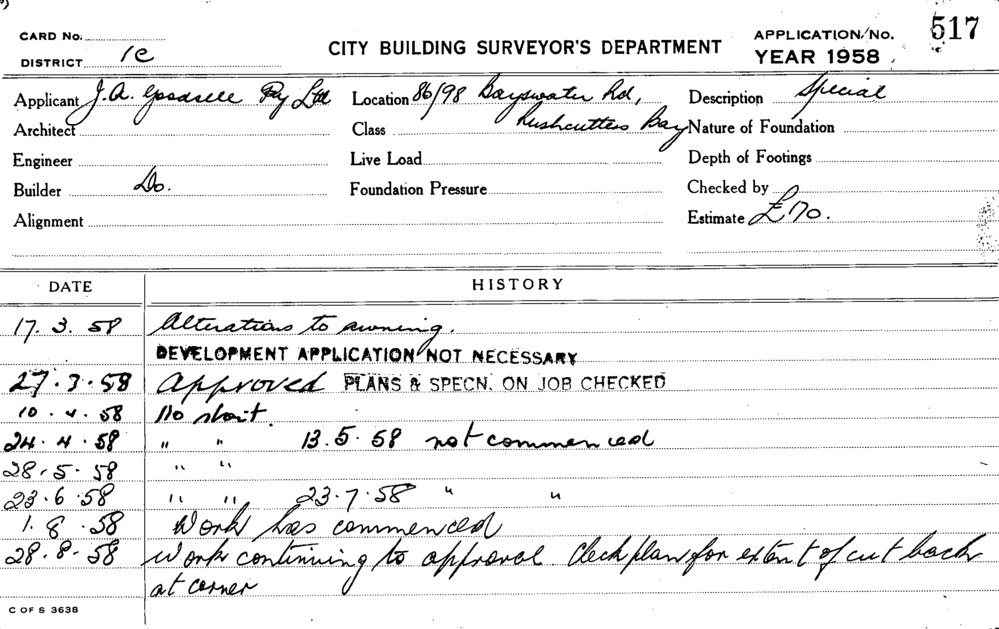 CARD No. APPLICATION/No. 517
DISTRICT 1C CITY BUILDING SURVEYOR'S DEPARTMENT YEAR 1958
Applicant J.A. Goodsell Pty Ltd Location 86/98 Bayswater Rd, Description Special
Architect Class Rushcutters Bay Nature of Foundation
Engineer Live Load Depth of Footings
Builder Do. Foundation Pressure Checked by
Alignment Estimate £70.
DATE HISTORY
17.3.58 Alterations to awning.
DEVELOPMENT APPLICATION NOT NECESSARY
27.3.58 Approved PLANS & SPECN. ON JOB CHECKED
10.4.58 No start.
24.4.58 " " 13.5.58 not commenced
28.5.58 " "
23.6.58 " " 23.7.58 " "
1.8.58 Work has commenced
28.8.58 Work continuing to approval. Check plan for extent of cut back
at corner
C OF S 3638